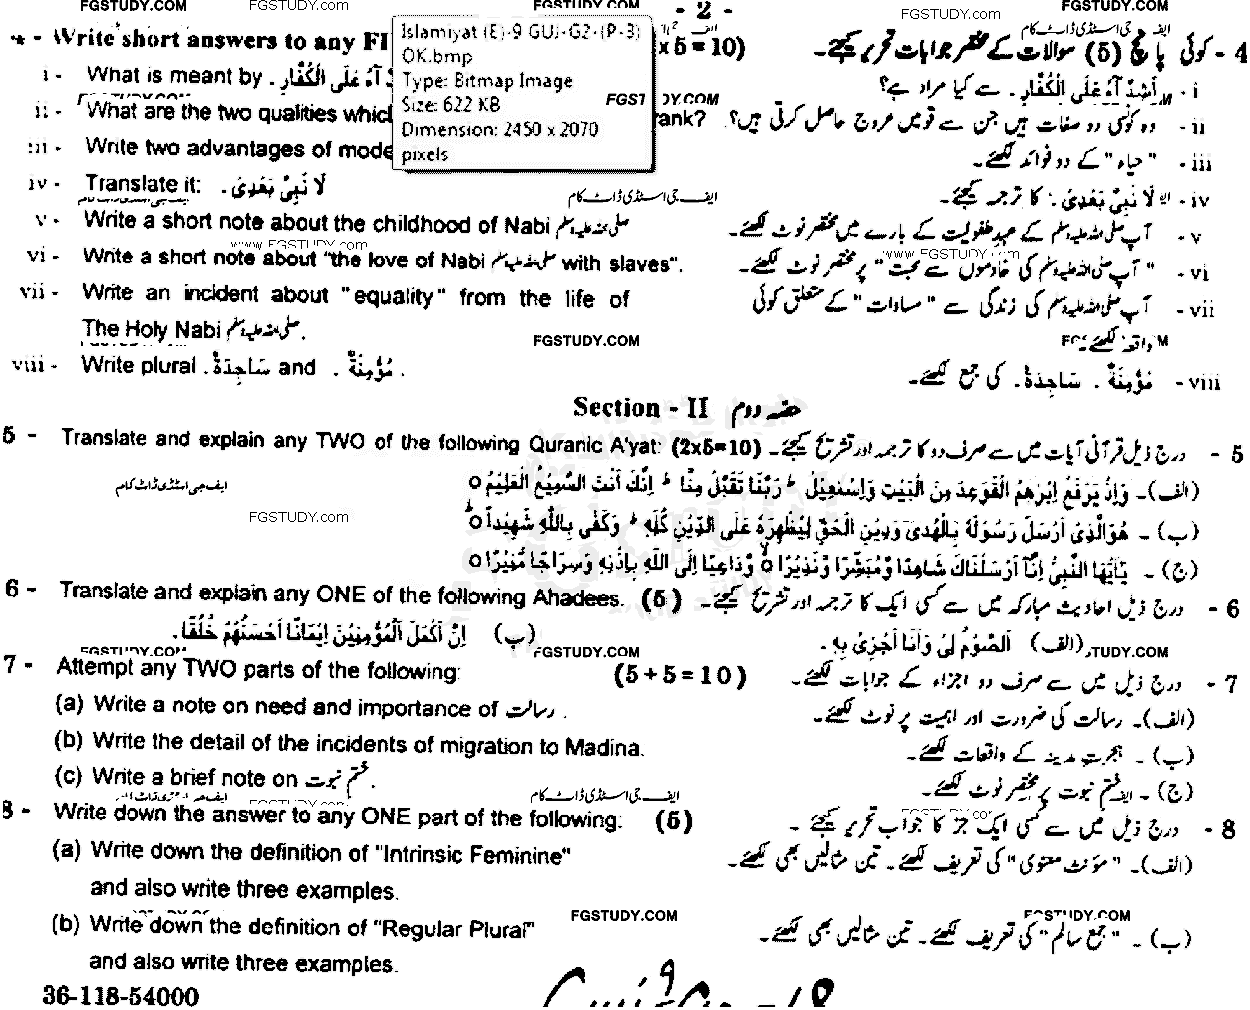 FGSTUDY.COM FGSTUDY.com FGSTUDY.COM - 2 - FGSTUDY.com FGSTUDY.COM
ایف جی اسٹڈی ڈاٹ کام
- Write short answers to any FI x 5 = 10) 4 - کوئی پانچ (5) سوالات کے مختصر جوابات تحریر کیجئے۔
Islamiyat (E)-9 GUJ-G2-(P-3)
OK.bmp
Type: Bitmap Image
Size: 622 KB
Dimension: 2450 x 2070
pixels
i - What is meant by . آءُ عَلَى الْكُفَّارِ i - أَشِدَّآءُ عَلَى الْكُفَّارِ. سے کیا مراد ہے؟
FGSTUDY.COM FGST UDY.COM
ii - What are the two qualities which rank? ii - وہ کونسی دو صفات ہیں جن سے قومیں عروج حاصل کرتی ہیں؟
iii - Write two advantages of mode iii - "حیاء" کے دو فوائد لکھئے۔
iv - Translate it: لَا نَبِيَّ بَعْدِيْ. iv - لَا نَبِيَّ بَعْدِيْ. کا ترجمہ کیجئے۔
ایف جی اسٹڈی ڈاٹ کام ایف جی اسٹڈی ڈاٹ کام
v - Write a short note about the childhood of Nabi صلی اللہ علیہ وسلم v - آپ صلی اللہ علیہ وسلم کے عہدِ طفولیت کے بارے میں مختصر نوٹ لکھئے۔
www.FGSTUDY.com www.FGSTUDY.com
vi - Write a short note about "the love of Nabi صلی اللہ علیہ وسلم with slaves". vi - "آپ صلی اللہ علیہ وسلم کی خادموں سے محبت" پر مختصر نوٹ لکھئے۔
vii - Write an incident about "equality" from the life of vii - آپ صلی اللہ علیہ وسلم کی زندگی سے "مساوات" کے متعلق کوئی
The Holy Nabi صلی اللہ علیہ وسلم. FGSTUDY.COM واقعہ لکھئے۔
viii - Write plural . سَاجِدَةٌ and . مُؤْمِنَةٌ . viii - مُؤْمِنَةٌ . سَاجِدَةٌ. کی جمع لکھئے۔
Section - II حصّہ دوم
5 - Translate and explain any TWO of the following Quranic A'yat: (2x5=10) 5 - درج ذیل قرآنی آیات میں سے صرف دو کا ترجمہ اور تشریح کیجئے۔
ایف جی اسٹڈی ڈاٹ کام (الف)۔ وَإِذْ يَرْفَعُ إِبْرٰهِمُ الْقَوَاعِدَ مِنَ الْبَيْتِ وَإِسْمٰعِيْلُ ؕ رَبَّنَا تَقَبَّلْ مِنَّا ؕ إِنَّكَ أَنْتَ السَّمِيْعُ الْعَلِيْمُ ○
FGSTUDY.com (ب)۔ هُوَ الَّذِيْ أَرْسَلَ رَسُوْلَهٗ بِالْهُدٰى وَدِيْنِ الْحَقِّ لِيُظْهِرَهٗ عَلَى الدِّيْنِ كُلِّهٖ ؕ وَكَفٰى بِاللّٰهِ شَهِيْدًا ○
(ج)۔ يٰٓأَيُّهَا النَّبِيُّ إِنَّآ أَرْسَلْنَاكَ شَاهِدًا وَّمُبَشِّرًا وَّنَذِيْرًا ○ وَّدَاعِيًا إِلَى اللّٰهِ بِإِذْنِهٖ وَسِرَاجًا مُّنِيْرًا ○
6 - Translate and explain any ONE of the following Ahadees. (5) 6 - درج ذیل احادیث مبارکہ میں سے کسی ایک کا ترجمہ اور تشریح کیجئے۔
(الف) اَلصَّوْمُ لِيْ وَاَنَا اَجْزِيْ بِهٖ. (ب) اِنَّ اَكْمَلَ الْمُؤْمِنِيْنَ اِيْمَانًا اَحْسَنُهُمْ خُلُقًا.
FGSTUDY.COM FGSTUDY.COM .TUDY.COM
7 - Attempt any TWO parts of the following: (5+5=10) 7 - درج ذیل میں سے صرف دو اجزاء کے جوابات لکھئے۔
(a) Write a note on need and importance of رسالت . (الف)۔ رسالت کی ضرورت اور اہمیت پر نوٹ لکھئے۔
(b) Write the detail of the incidents of migration to Madina. (ب)۔ ہجرتِ مدینہ کے واقعات لکھئے۔
(c) Write a brief note on ختم نبوت . (ج)۔ ختم نبوت پر مختصر نوٹ لکھئے۔
ایف جی اسٹڈی ڈاٹ کام FGSTUDY.com ایف جی اسٹڈی ڈاٹ کام
8 - Write down the answer to any ONE part of the following: (5) 8 - درج ذیل میں سے کسی ایک جز کا جواب تحریر کیجئے۔
(a) Write down the definition of "Intrinsic Feminine" (الف)۔ "مونث معنوی" کی تعریف لکھئے۔ تین مثالیں بھی لکھئے۔
and also write three examples.
FGSTUDY.COM FGSTUDY.COM
(b) Write down the definition of "Regular Plural" (ب)۔ "جمع سالم" کی تعریف لکھئے۔ تین مثالیں بھی لکھئے۔
and also write three examples.
36-118-54000